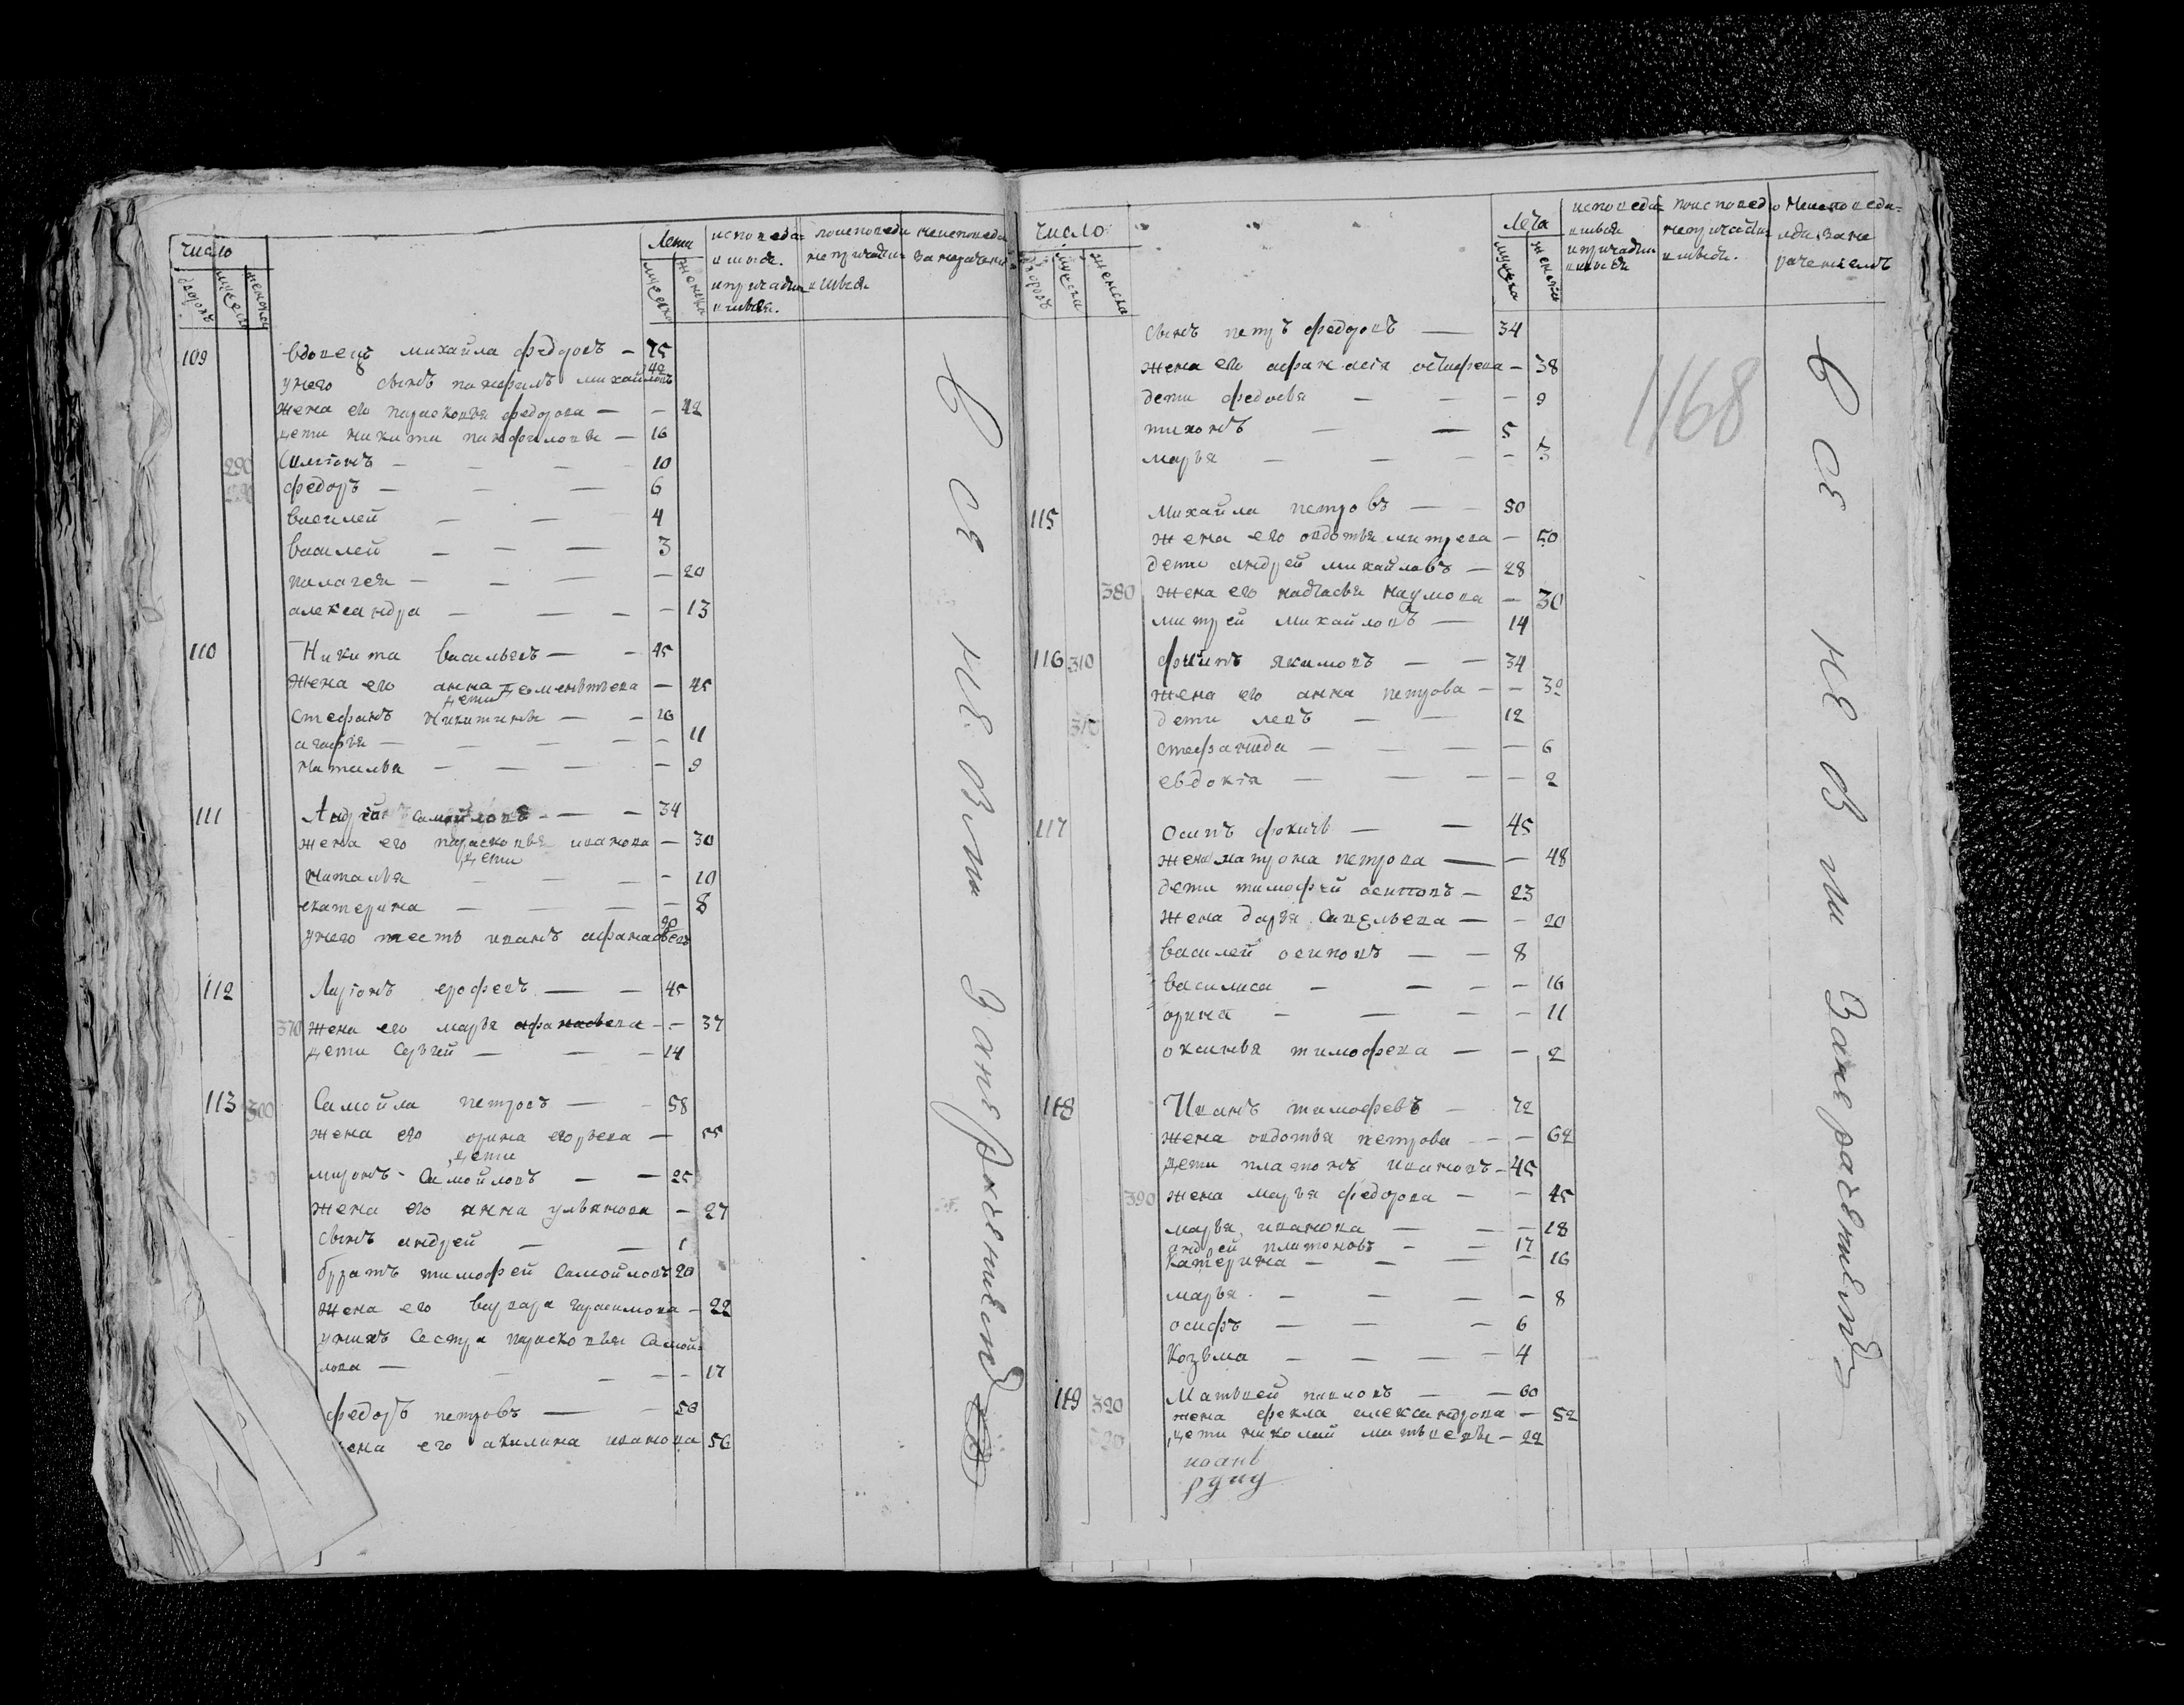 число
дворовъ
мужеска
женска
Лета
мужеска
женска
исповеда
вшыея.
ипричащ
авшыея.
поисповеди
непричащ
авшыея
неисповеда
за нерачение
109 вдовецъ михайла федоровъ — 75
унего сынъ панфилъ михайловъ 42
жена его парасковья федорова — — 42
дети никита панфиловы — 16
290 Симионъ — — — 10
федоръ — — — 6
василей — — — 4
василей — — — 3
палагея — — — — 20
александра — — — — 13
110 Никита васильевъ — — 45
жена его анна дементьева — 45
дети
стефанъ никитины — — 16
агафья — — — — — 11
наталья — — — — 9
111 Андрей самойловъ — — 34
жена его парасковья иванова — 30
дети
наталья — — — 10
екатерина — — — — 8
унего тесть иванъ афанасьевъ 90
112 Ларионъ ерофеевъ — — 45
370 жена его марья афанасьева — — 37
дети Сергей — — — 14
113 300 Самойла петровъ — — 58
жена его орина егорьева — 55
дети
миронъ - Самойловъ — — 25
жена его анна ульянова — 27
сынъ андрей — — 1
братъ тимофей Самойловъ 20
жена его варвара гарасимова — 22
унихъ Сестра парасковья Самой=
лова — — — — — 17
федоръ петровъ — — 50
жена его акилина иванова 56
все не были Занерачениемъ
число
дворовъ
мужеска
женска
Лета
мужеска
женска
исповеда=
вшыея
ипричащ
авшыея
поисповед
непричащ
авшыея.
о неисповеда=
льди, за не
рачениемъ
1168
сынъ петръ федоровъ — 34
жена его афанасия остафева — 38
дети федосья — — — 9
тихонъ — — 5
марья — — — — 3
115 михайла петровъ — — 80
жена его овдотья митрева — 50
дети андрей михайловъ — 28
380 жена его настасья наумова — 30
митрей михайловъ — 14
116 310 филипъ якимовъ — — 34
жена его анна петрова — — 32
310 дети левъ — — 12
стефанида — — — — 6
евдокия — — — — 2
117 Осипъ фокичъ — — 45
жена матрона петрова — — 48
дети тимофей осиповъ — 23
жена дарья Савельева — — 20
василей осиповъ — — 8
василиса — — — — 16
орина — — — — 11
оксинья тимофева — — 2
118 Иванъ тимофевъ — 72
жена овдотья петрова — — 62
дети платонъ ивановъ — 45
390 жена марья федорова — — 45
марья, иванова — — — 18
андрей платоновъ — — 17
катерина — — — — 16
марья — — — — 8
осифъ — — — 6
Козьма — — — — 4
119 320 Матвей павловъ — — 60
жена фекла александрова — 52
дети николай матвеевы — 22
иоанъ
руку
все не были Занерачениемъ